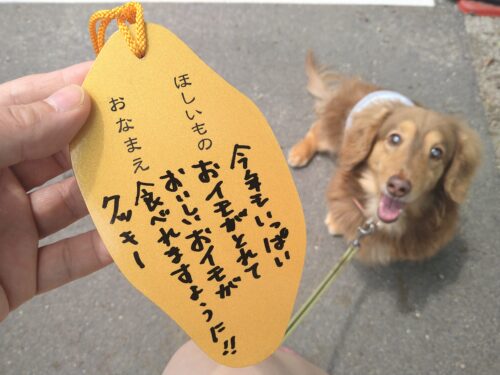 ほしいもの
今年もいっぱい
おイモがとれて
おいしいおイモが
食べれますように!!
おなまえ
クッキー